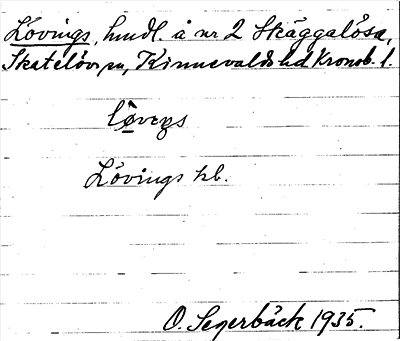 Lövings, hmdl. å nr 2 Skäggalösa,
Skatelövs sn, Kinnevalds hd Kronob. l.
Lövings kb.
O. Segerbäck 1935.